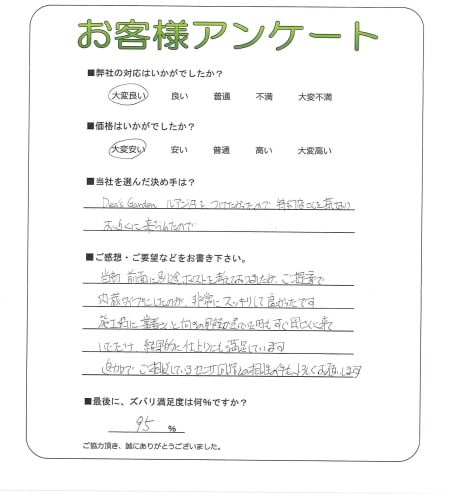 お客様アンケート
■弊社の対応はいかがでしたか？
大変良い 良い 普通 不満 大変不満
■価格はいかがでしたか？
大変安い 安い 普通 高い 大変高い
■当社を選んだ決め手は？
Dea's Garden ルアンタを つけたかったので
お近くに 来られたので
■ご感想・ご要望などをお書き下さい。
当初 前面に別途ポストを考えておりましたが、ご提案で
内蔵タイプにしたのが、非常に スッキリして 良かったです
施工時に 業者さんと すぐ に来て
いただけ、結果的に仕上りにも満足しています
ご相談している よろしくお願いします
■最後に、ズバリ満足度は何％ですか？
95 ％
ご協力頂き、誠にありがとうございました。